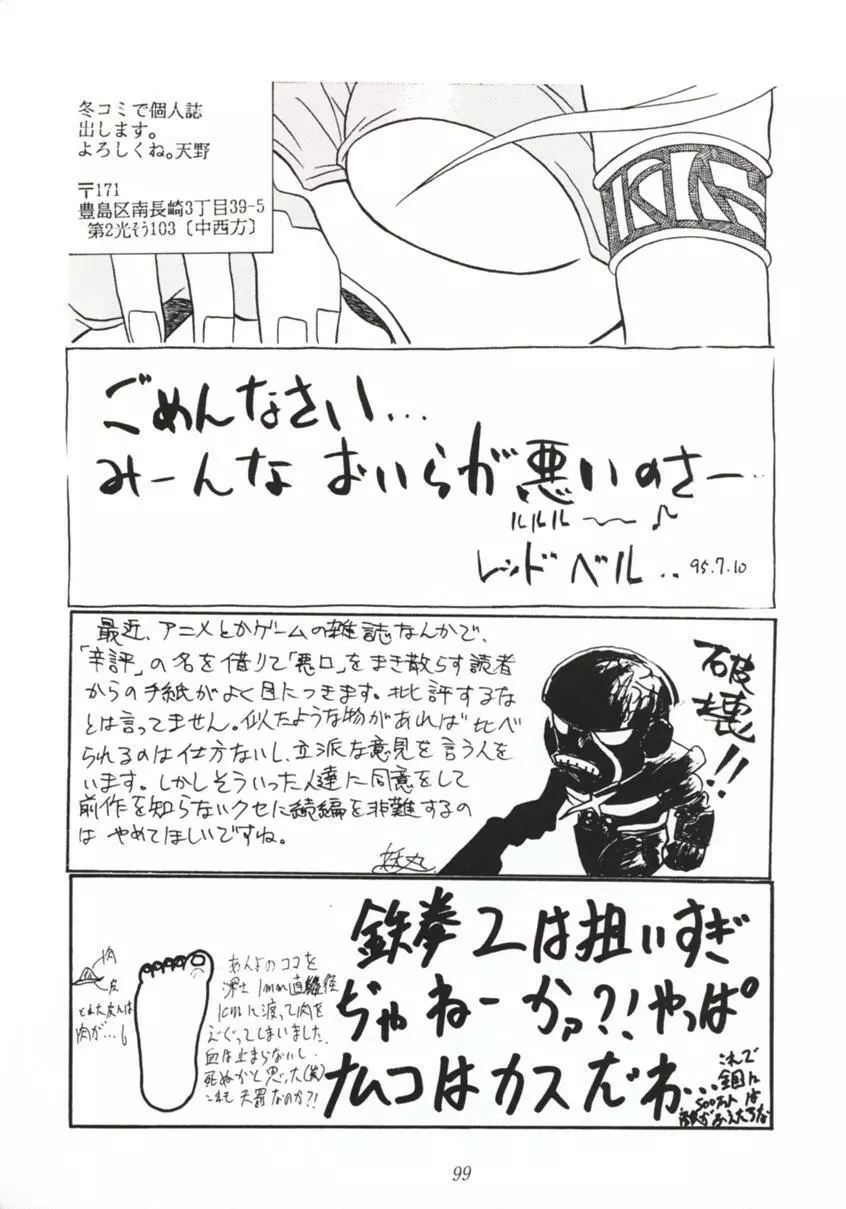 冬コミで個人誌
出します。
よろしくね。天野
〒171
豊島区南長崎3丁目39-5
第2光そう103〔中西方〕
ごめんなさい…
みーんな おいらが悪いのさー…
ルルル〜〜♪
レッドベル.. 95.7.10
最近、アニメとかゲームの雑誌なんかで、
「辛評」の名を借りて「悪口」をまき散らす読者
からの手紙がよく目につきます。批評するな
とは言ってません。似たような物があれば比べ
られるのは仕方ないし、立派な意見を言う人も
います。しかしそういった人達に同意をして
前作を知らないクセに続編を非難するの
は やめてほしいですね。
妖丸
破壊!!
肉
皮
とれた皮には
肉が…!
あんよのココを
深さ1mm直径
1cmに渡って肉を
えぐってしまいました
血は止まらないし、
死ぬかと思った(笑)
これも天罰なのか?!
鉄拳2は狙いすぎ
ぢゃねーかァ?!やっぱ
ナムコはカスだわ…
これで
全国に
500万人は
敵がふえたろな
99